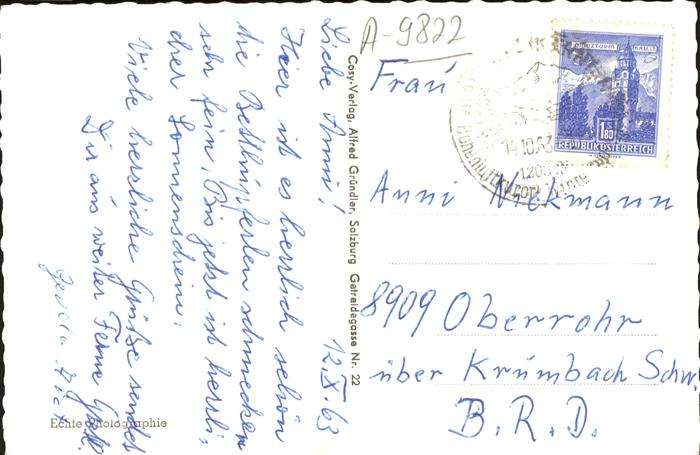 A-9822
12.X.63
Liebe Anni!
Hier ist es herrlich schön
die Betthupferlen schmecken
sehr fein, Bis jetzt ist herrli-
cher Sonnenschein.
Viele herzliche Grüße sendet
Dir aus weiter Ferne
Echte Photographie
Cosy-Verlag, Alfred Gründler, Salzburg Getreidegasse Nr. 22
Frau
Anni Nickmann
8909 Oberrohr
über Krümbach Schw.
B.R.D.
14.10.63
1200
Höhenluftkurort
1.80
REPUBLIK ÖSTERREICH